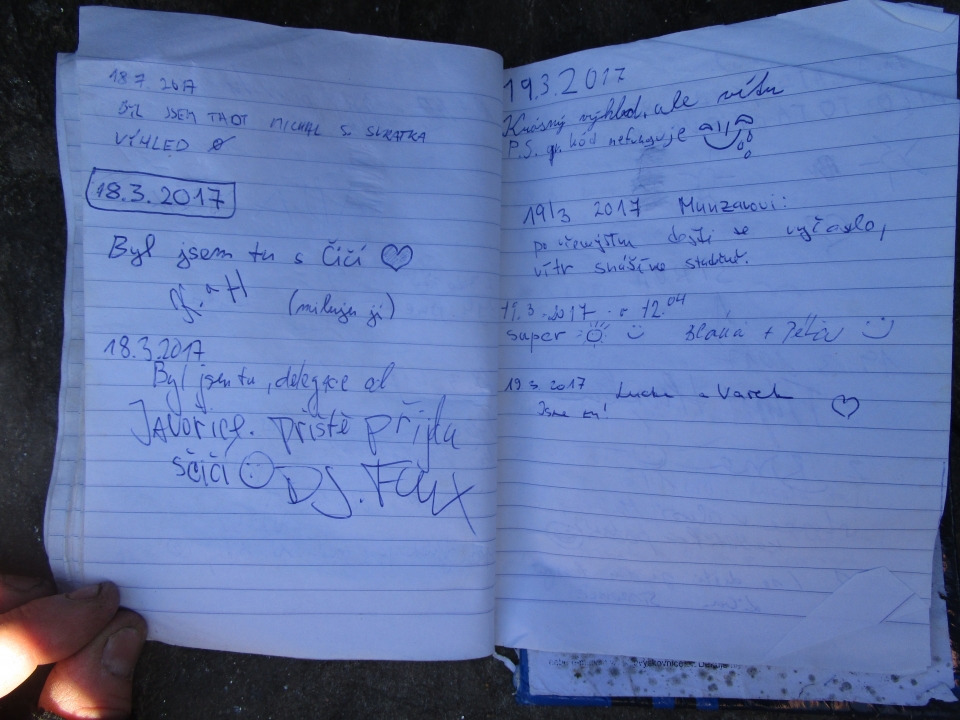 18.7. 2017
BYL JSEM TADY MICHAL S
VÝHLED
18.3.2017
Byl jsem tu s Čičí ♡
a H (miluju ji)
18.3.2017
Byl jsem tu, delegace od
Javořice. příště přijdu
sčičí DJ. Felix
19.3.2017
Krásný výhled, ale vítr
P.S. qr. kód nefunguje
19/3 2017 Munzarovi:
po včerejším dešti se vyčaslo,
vítr snášíme statečně.
19.3.2017 - v 12.04
super Blanka +
19 3 2017 Lucka a Varek ♡
Jsme tu!